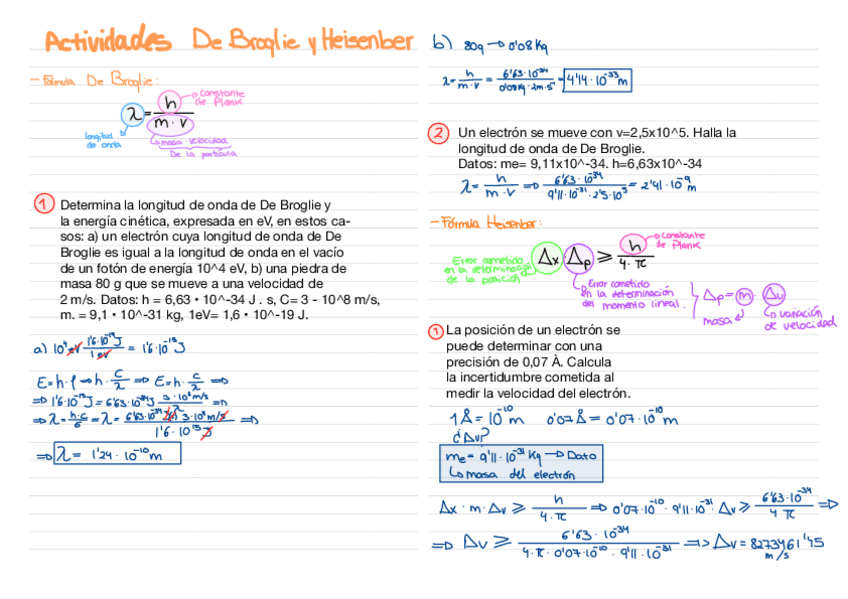 Actividades De Broglie y Heisenber
- Fórmula De Broglie:
λ = h / m · v
constante de Plank
longitud de onda
masa · velocidad De la partícula
1 Determina la longitud de onda de De Broglie y
la energía cinética, expresada en eV, en estos ca-
sos: a) un electrón cuya longitud de onda de De
Broglie es igual a la longitud de onda en el vacío
de un fotón de energía 10^4 eV, b) una piedra de
masa 80 g que se mueve a una velocidad de
2 m/s. Datos: h = 6,63 • 10^-34 J . s, C= 3 - 10^8 m/s,
m. = 9,1 • 10^-31 kg, 1eV= 1,6 • 10^-19 J.
a) 10⁴ eV · 1'6·10⁻¹⁹J / 1 eV = 1'6·10⁻¹⁵J
E=h·f → h · c/λ ⇒ E=h · c/λ ⇒
⇒ 1'6·10⁻¹⁵J = 6'63·10⁻³⁴J · 3·10⁸m/s / λ ⇒
⇒ λ = h·c / E = λ = 6'63·10⁻³⁴ 3·10⁸ m/s / 1'6·10¹⁵ J ⇒
⇒ λ = 1'24 · 10⁻¹⁰ m
b) 80g → 0'08 Kg
λ = h / m·v = 6'63·10⁻³⁴ / 0'08Kg · 2m·s⁻ = 4'14·10⁻³³ m
2 Un electrón se mueve con v=2,5x10^5. Halla la
longitud de onda de De Broglie.
Datos: me= 9,11x10^-34. h=6,63x10^-34
λ = h / m·v ⇒ 6'63·10⁻³⁴ / 9'11·10⁻³¹ · 2'5·10⁵ = 2'91·10⁻⁹ m
- Fórmula Heisenber:
Δx Δp ≥ h / 4·π
constante de Plank
Error cometido en la determinación de la posición
Error cometido en la determinación del momento lineal.
Δp = m Δv
masa
variación de velocidad
1 La posición de un electrón se
puede determinar con una
precisión de 0,07 Å. Calcula
la incertidumbre cometida al
medir la velocidad del electrón.
1 Å = 10⁻¹⁰ m 0'07 Å = 0'07·10⁻¹⁰ m
¿Δv?
me = 9'11·10⁻³¹ Kg → Dato
↳ masa del electrón
Δx · m · Δv ≥ h / 4·π ⇒ 0'07·10⁻¹⁰ · 9'11·10⁻³¹ · Δv ≥ 6'63·10⁻³⁴ / 4 π ⇒
⇒ Δv ≥ 6'63 · 10⁻³⁴ / 4·π·0'07·10⁻¹⁰ · 9'11·10⁻³¹ ⇒ Δv = 8273461'45 m/s